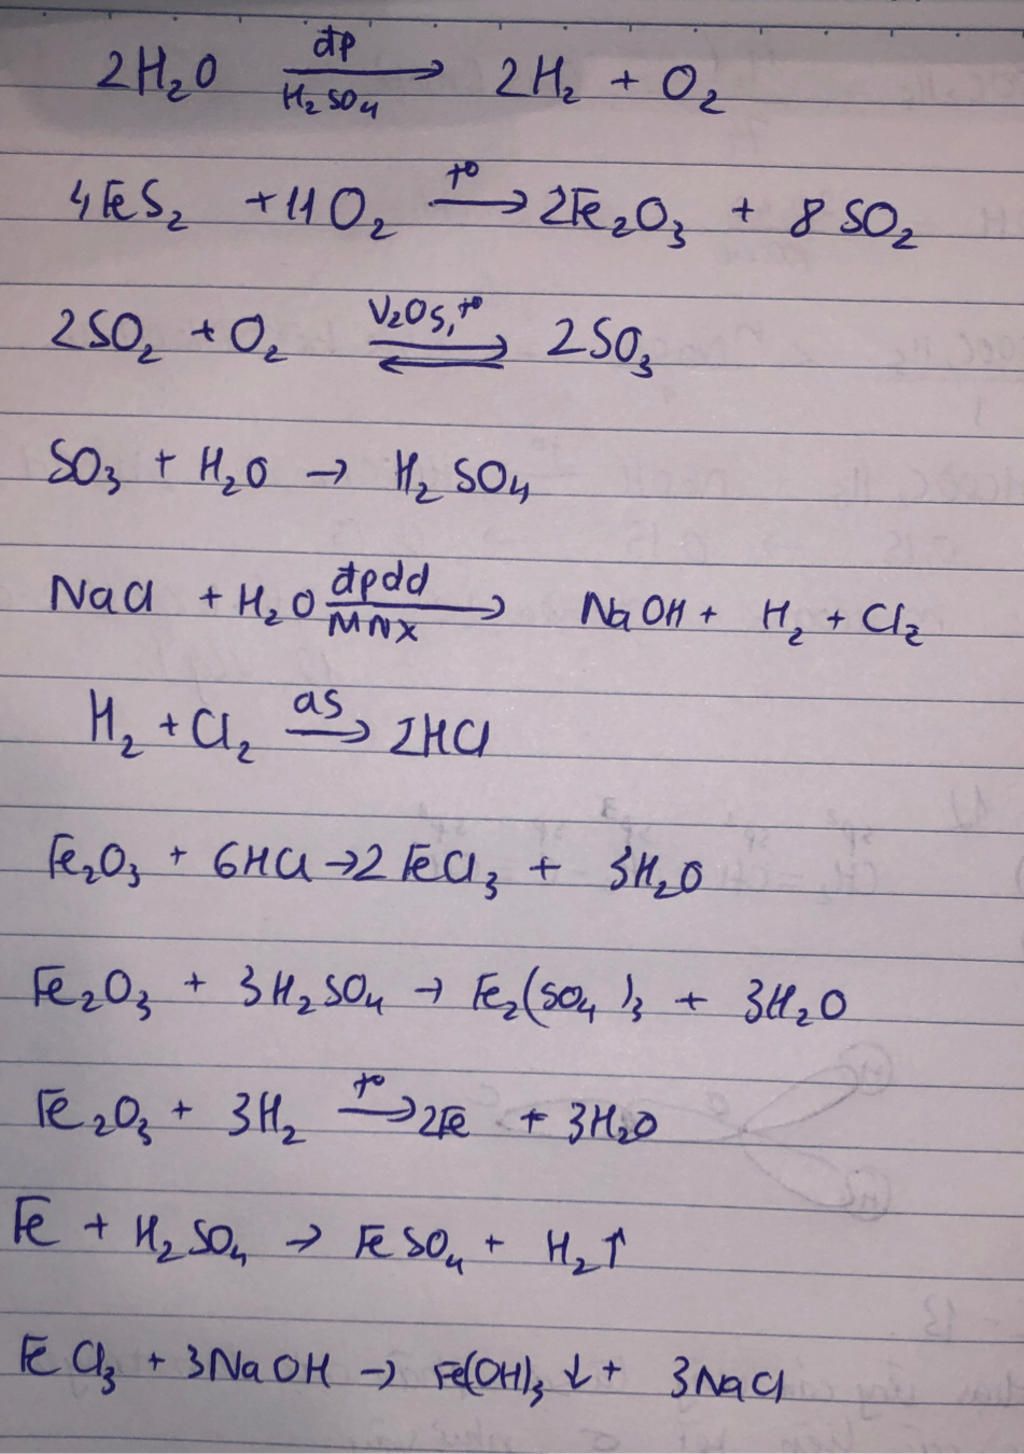 2H₂O —đp/H₂SO₄→ 2H₂ + O₂
4FeS₂ + 11O₂ —t°→ 2Fe₂O₃ + 8SO₂
2SO₂ + O₂ ⇌(V₂O₅, t°) 2SO₃
SO₃ + H₂O → H₂SO₄
NaCl + H₂O —đpdd/MNX→ NaOH + H₂ + Cl₂
H₂ + Cl₂ —as→ 2HCl
Fe₂O₃ + 6HCl → 2FeCl₃ + 3H₂O
Fe₂O₃ + 3H₂SO₄ → Fe₂(SO₄)₃ + 3H₂O
Fe₂O₃ + 3H₂ —t°→ 2Fe + 3H₂O
Fe + H₂SO₄ → FeSO₄ + H₂↑
FeCl₃ + 3NaOH → Fe(OH)₃↓ + 3NaCl